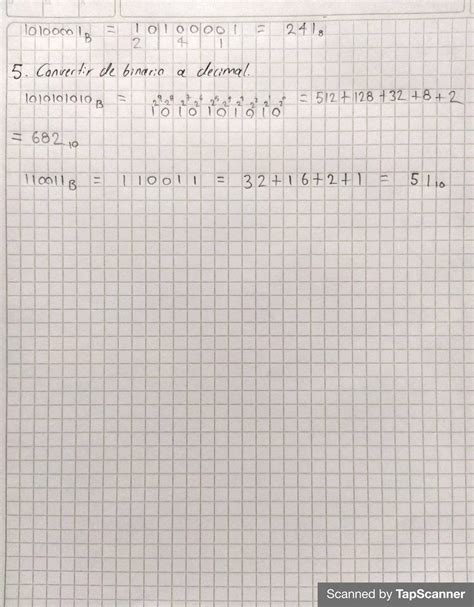 10100001B = 10|100|001 = 241₈
2 4 1
5. Convertir de binario a decimal.
1010101010B = 2⁹2⁸2⁷2⁶2⁵2⁴2³2²2¹2⁰ = 512+128+32+8+2
1010101010
= 682₁₀
110011B = 110011 = 32+16+2+1 = 51₁₀
Scanned by TapScanner